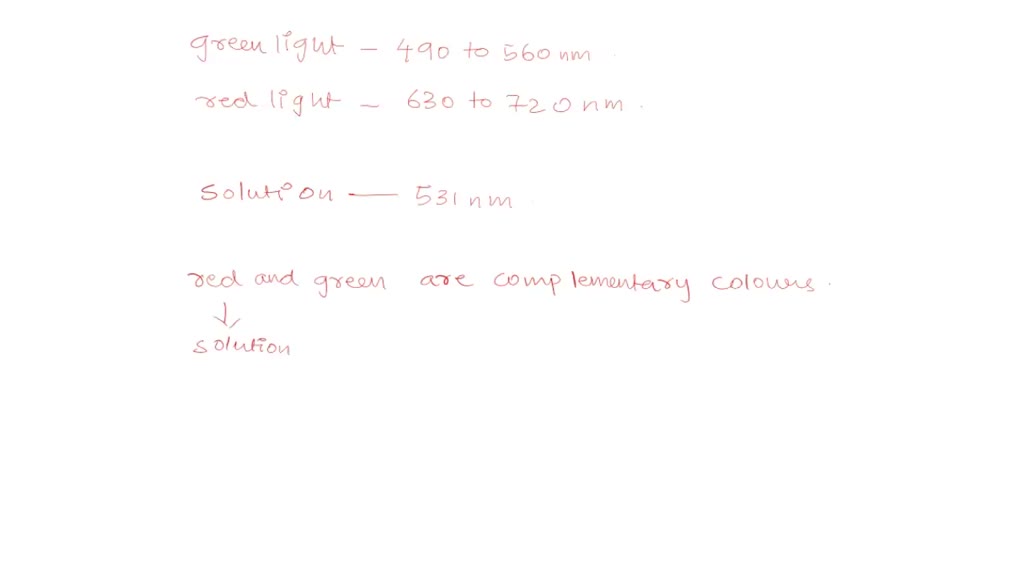 green light - 490 to 560 nm.
red light - 630 to 720 nm.
solution — 531 nm.
red and green are complementary colours.
↓
solution